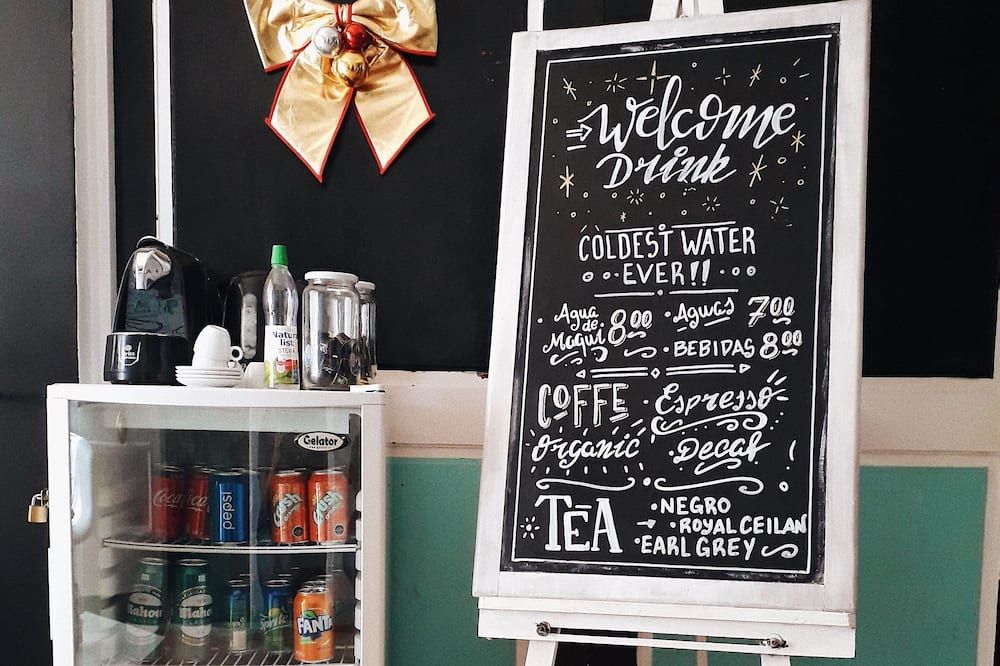 Welcome
Drink
COLDEST WATER
EVER!!
Agua
de
Moqui 800
Aguas 700
BEBIDAS 800
COFFE
Organic
Espresso
Decaf
TEA
NEGRO
ROYAL CEILAN
EARL GREY
Natura
list
STEVIA
Gelator
Coca-Cola
pepsi
Crush
Crush
Mahou
Mahou
Sprite
FANTA